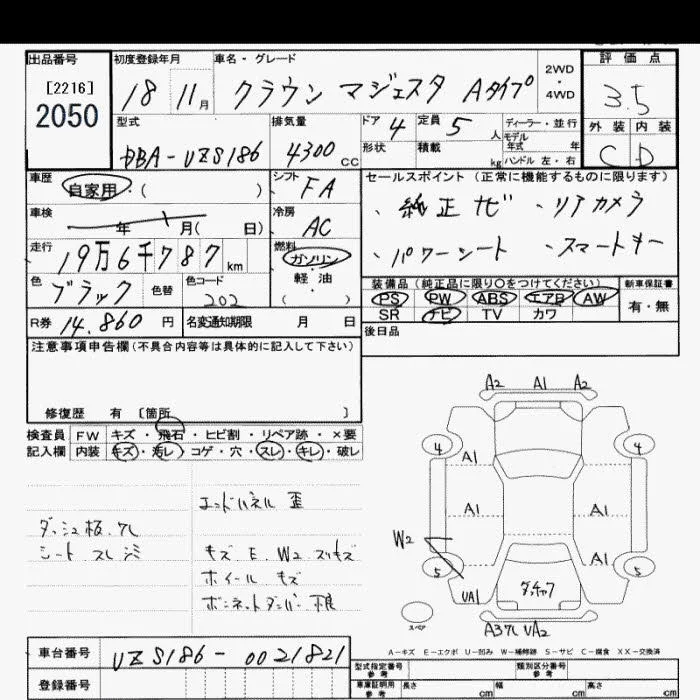 出品番号 初度登録年月 車名・グレード 2WD・4WD 評価点
[2216]
2050
18 11月 クラウン マジェスタ Aタイプ 3.5
型式 排気量 ドア 4 定員 5 人 ディーラー・並行 外装 内装
モデル年式 年
DBA-UZS186 4300 CC 形状 積載 kg ハンドル 左・右 C D
車歴 自家用・( ) シフト FA セールスポイント (正常に機能するものに限ります)
車検 年 月( 日) 冷房 AC 、純正ナビ ・リアカメラ
走行 19万6千787km 燃料 ガソリン 軽・油 ( ) 、パワーシート ・スマートキー
色 ブラック 色替 色コード 202 装備品 (純正品に限り○をつけてください) 新車保証書
PS PW ABS エアB AW 有・無
SR ナビ TV カワ
R券 14.860 円 名変通知期限 月 日 後日品
注意事項申告欄 (不具合内容等は具体的に記入して下さい)
修復歴 有 〔箇所 〕
検査員 FW キズ・飛石・ヒビ割・リペア跡・×要
記入欄 内装 キズ・汚レ・コゲ・穴・スレ・キレ・破レ
エンドパネル 歪
ダッシュ板 ワレ
シート スレ シミ キズ E W2 スリキズ
ホイール キズ
ボンネットダンパー 不良
A2 A1 A2
4 4
A1
A1 A1
W2 A1
5 5
UA1
スペア
A3ワレ UA2
A-キズ E-エクボ U-凹み W-補修跡 S-サビ C-腐食 XX-交換済
車台番号 UZS186-0021821 型式指定番号 参考 類別区分番号 参考
登録番号 車庫証明用 参考 長さ cm 幅 cm 高さ cm